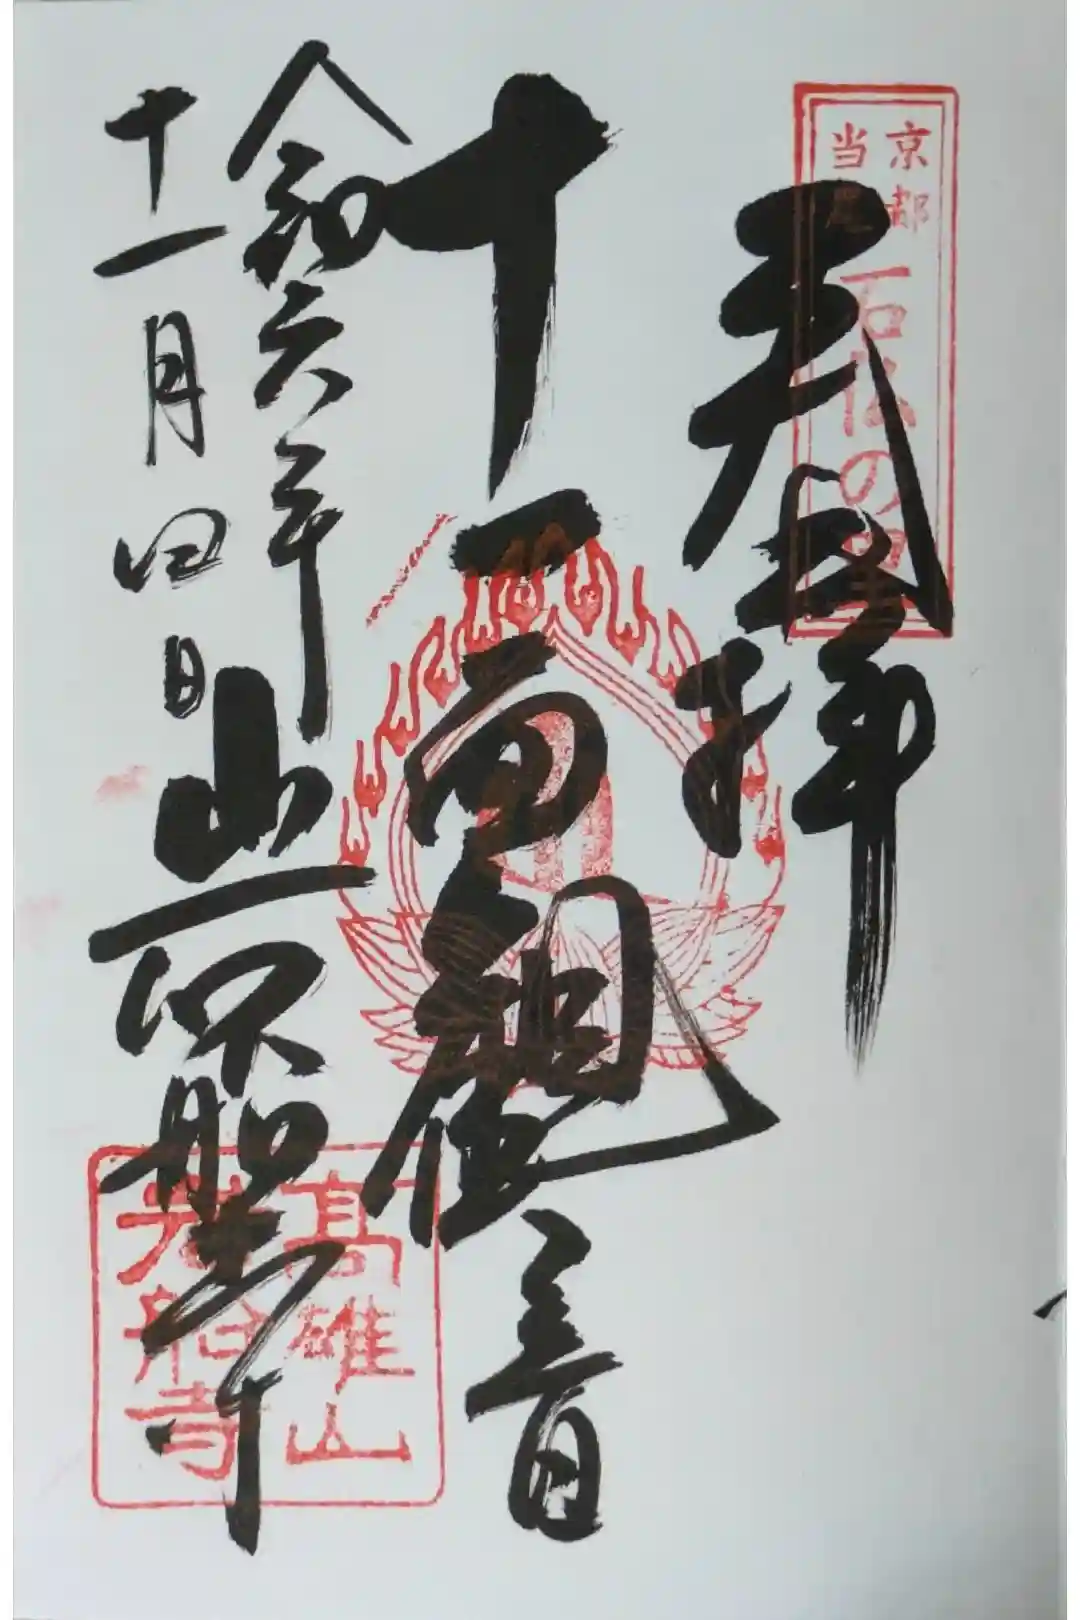 京都
当尾
石仏の里
奉拝
十一面観音
令和六年
十一月四日
岩船寺
高雄山
岩船寺